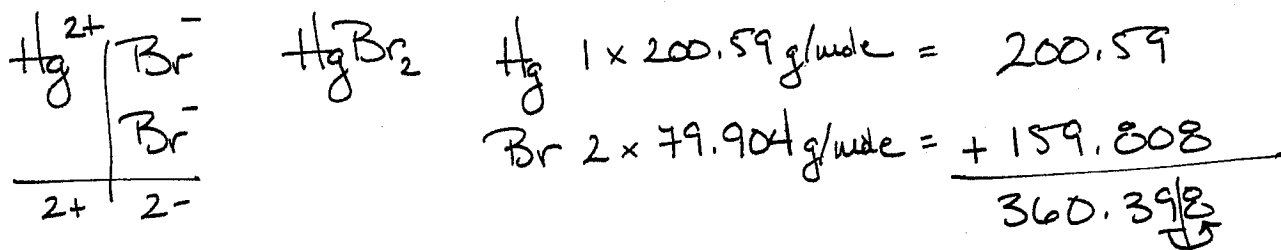 Hg²⁺ Br⁻ HgBr₂ Hg 1 × 200.59 g/mole = 200.59
Br⁻ Br 2 × 79.904 g/mole = + 159.808
2+ 2- 360.398